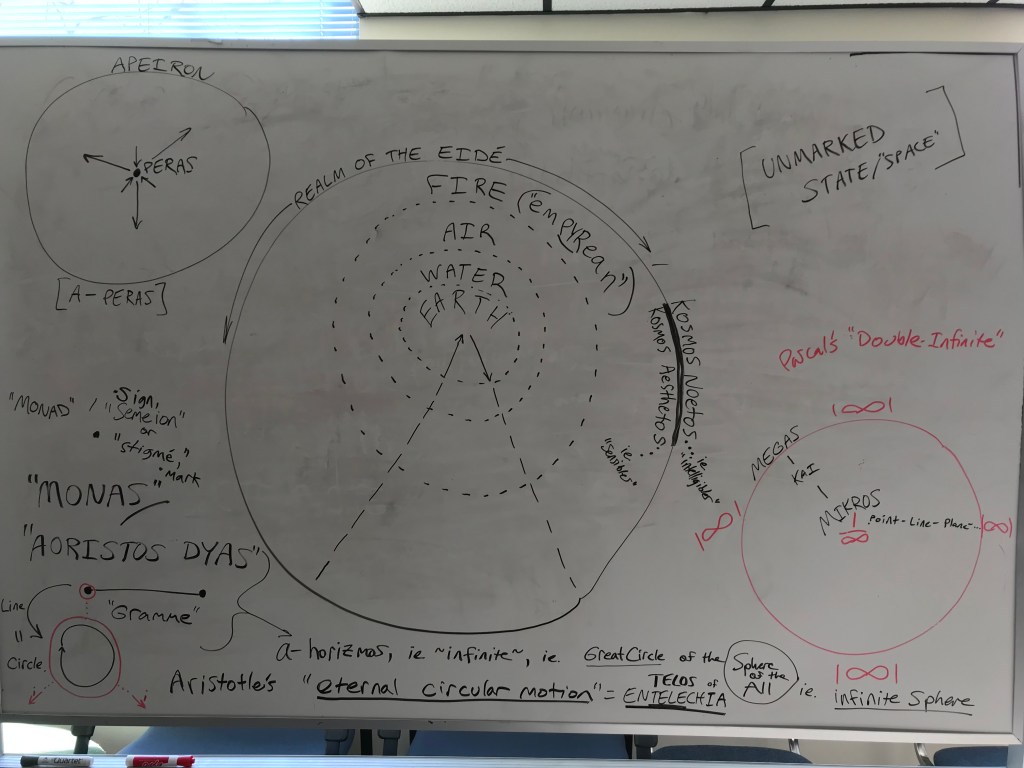 APEIRON
PERAS
[A-PERAS]
REALM OF THE EIDÉ
FIRE ("empyrean")
AIR
WATER
EARTH
Kosmos Noetos...
ie. "intelligibles"
Kosmos Aesthetos...
ie "sensibles"
[UNMARKED
STATE/"SPACE"]
Pascal's "Double-Infinite"
|∞|
MEGAS
KAI
MIKROS
1
∞
Point-Line-Plane...
|∞|
|∞|
|∞|
"MONAD" /
• Sign,
"Semeion"
or
• "stigmé,"
• Mark
"MONAS"
"AORISTOS DYAS"
"Gramme"
Line
"
Circle
i
i
a-horizmos, ie ~infinite~, ie. Great Circle of the Sphere of the All ie. infinite Sphere
Aristotle's "eternal circular motion" = TELOS of ENTELECHIA